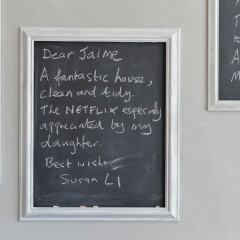 Dear Jaime
A fantastic house,
clean and tidy.
The NETFLIX especially
appreciated by my
daughter.
Best wishes
Susan L
T
A
M